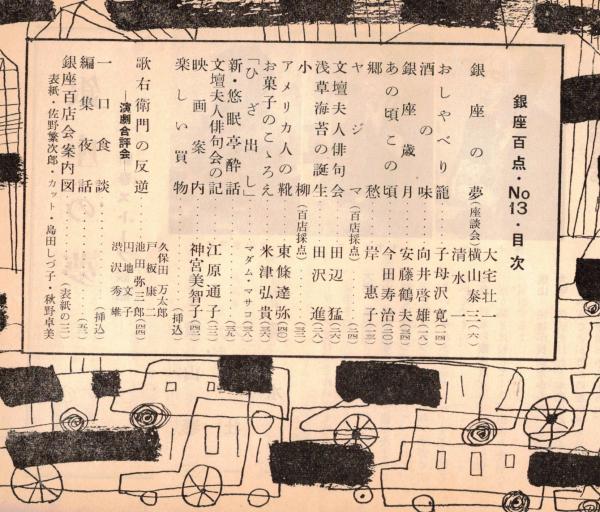 銀座百点・No13・目次
銀座の夢(座談会) 大宅壮一 横山泰三 清水一 (六)
おしゃべり籠 子母沢寛 (一四)
酒の味 向井啓雄 (一八)
銀座歳月 安藤鶴夫 (三四)
あの頃この頃 今田寿治 (二〇)
郷愁 岸恵子 (二三)
ヤジマ(百店採点) (二四)
文壇夫人俳句会 田辺猛 (二六)
浅草海苔の誕生 田沢進 (二八)
小柳(百店採点) (三二)
アメリカ人の靴 東條達弥 (四〇)
お菓子のこゝろえ 米津弘貴 (三六)
「ひざ出し」 マダム・マサコ (三八)
新・悠眠亭酔話 (三九)
文壇夫人俳句会の記 江原通子 (三〇)
映画案内 神宮美智子 (四三)
楽しい買物 (挿込)
歌右衛門の反逆
―演劇合評会―
久保田万太郎
戸板康二
池田弥三郎 (四四)
円地文子
渋沢秀雄
一口食談 (挿込)
編集夜話 (五二)
銀座百店会案内図 (表紙の三)
表紙・佐野繁次郎・カット・島田しづ子・秋野卓美